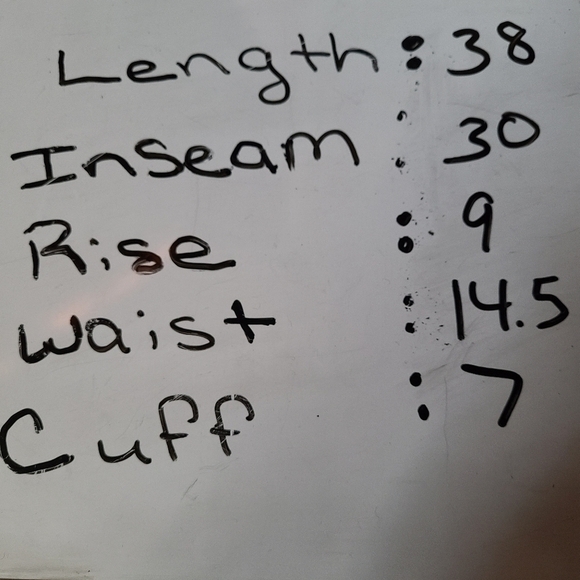 Length : 38
Inseam : 30
Rise : 9
Waist : 14.5
Cuff : 7